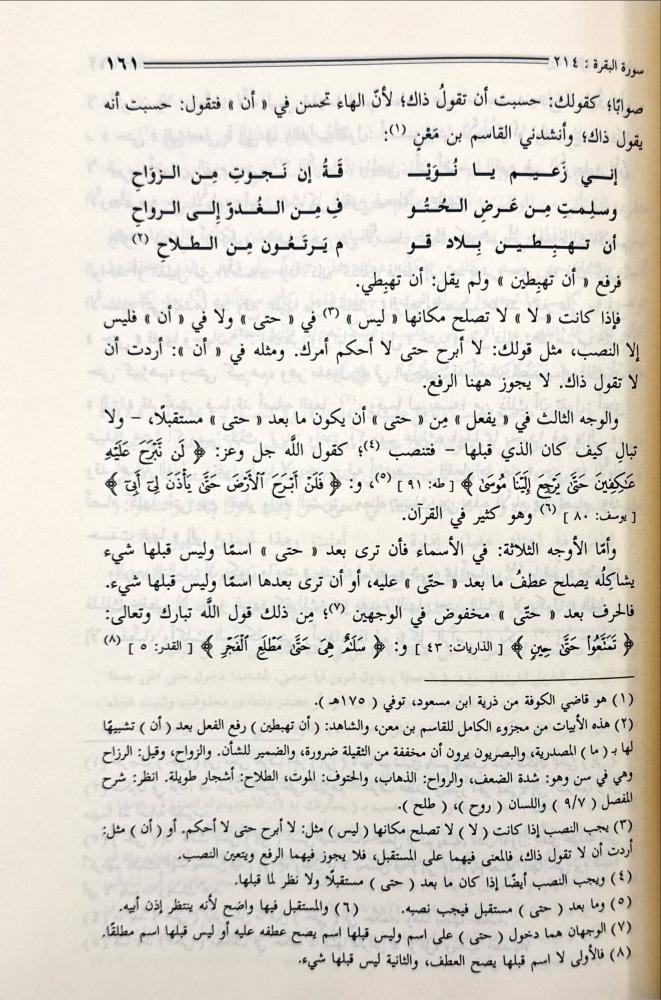 سورة البقرة : ٢١٤
١٦١
صوابًا؛ كقولك: حسبت أن تقولُ ذاك؛ لأنّ الهاء تحسن في « أن » فتقول: حسبت أنه
يقول ذاك؛ وأنشدني القاسم بن مَعْنٍ (١):
إنـي زَعـيـم يـا نُـوَيْـ قَـةُ إن نـجـوتِ مِـن الـزوَاحِ
وسـلِـمـتِ مِـن عَـرضِ الـحُـتُـو فِ مِـن الـغُـدوّ إلى الـرواحِ
أن تـهـبِـطـيـن بِـلاد قـو م يَـرتَـعُـون مِـن الـطـلاحِ (٢)
فرفع « أن تهبطين » ولم يقل: أن تهبِطي.
فإذا كانت « لا » لا تصلح مكانها « ليس » (٣) في « حتى » ولا في « أن » فليس
إلا النصب، مثل قولك: لا أبرح حتى لا أحكم أمرك. ومثله في « أن »: أردت أن
لا تقول ذاك. لا يجوز ههنا الرفع.
والوجه الثالث في « يفعل » مِن « حتى » أن يكون ما بعد « حتى » مستقبلًا، – ولا
تبال كيف كان الذي قبلها – فتنصب (٤)؛ كقول اللَّه جل وعز: ﴿ لَن نَّبْرَحَ عَلَيْهِ
عَٰكِفِينَ حَتَّىٰ يَرْجِعَ إِلَيْنَا مُوسَىٰ ﴾ [ طه: ٩١ ] (٥)، و: ﴿ فَلَنْ أَبْرَحَ ٱلْأَرْضَ حَتَّىٰ يَأْذَنَ لِىٓ أَبِىٓ ﴾
[ يوسف: ٨٠ ] (٦) وهو كثير في القرآن.
وأمّا الأوجه الثلاثة: في الأسماء فأن ترى بعد « حتى » اسمًا وليس قبلها شيء
يشاكِلُه يصلح عطفُ ما بعد « حتّى » عليه، أو أن ترى بعدها اسمًا وليس قبلها شيء.
فالحرف بعد « حتّى » مخفوض في الوجهين (٧)؛ مِن ذلك قول اللَّه تبارك وتعالى:
﴿ تَمَتَّعُوا۟ حَتَّىٰ حِينٍ ﴾ [ الذاريات: ٤٣ ] و: ﴿ سَلَٰمٌ هِىَ حَتَّىٰ مَطْلَعِ ٱلْفَجْرِ ﴾ [ القدر: ٥ ] (٨)
(١) هو قاضي الكوفة من ذرية ابن مسعود، توفي ( ١٧٥هـ ).
(٢) هذه الأبيات من مجزوء الكامل للقاسم بن معن، والشاهد: ( أن تهبطين ) رفع الفعل بعد ( أن ) تشبيهًا
لها بـ ( ما ) المصدرية، والبصريون يرون أن مخففة من الثقيلة ضرورة، والضمير للشأن. والزواح، وقيل: الرزاح
وهي في سن وهو: شدة الضعف، والرواح: الذهاب، والحتوف: الموت، الطلاح: أشجار طويلة. انظر: شرح
المفصل ( ٩/٧ ) واللسان ( روح )، ( طلح ).
(٣) يجب النصب إذا كانت ( لا ) لا تصلح مكانها ( ليس ) مثل: لا أبرح حتى لا أحكم. أو ( أن ) مثل:
أردت أن لا تقول ذاك، فالمعنى فيهما على المستقبل، فلا يجوز فيهما الرفع ويتعين النصب.
(٤) ويجب النصب أيضًا إذا كان ما بعد ( حتى ) مستقبلًا ولا نظر لما قبلها.
(٥) وما بعد ( حتى ) مستقبل فيجب نصبه. (٦) والمستقبل فيها واضح لأنه ينتظر إذن أبيه.
(٧) الوجهان هما دخول ( حتى ) على اسم وليس قبلها اسم يصح عطفه عليه أو ليس قبلها اسم مطلقًا.
(٨) فالأولى لا اسم قبلها يصح العطف، والثانية ليس قبلها شيء.